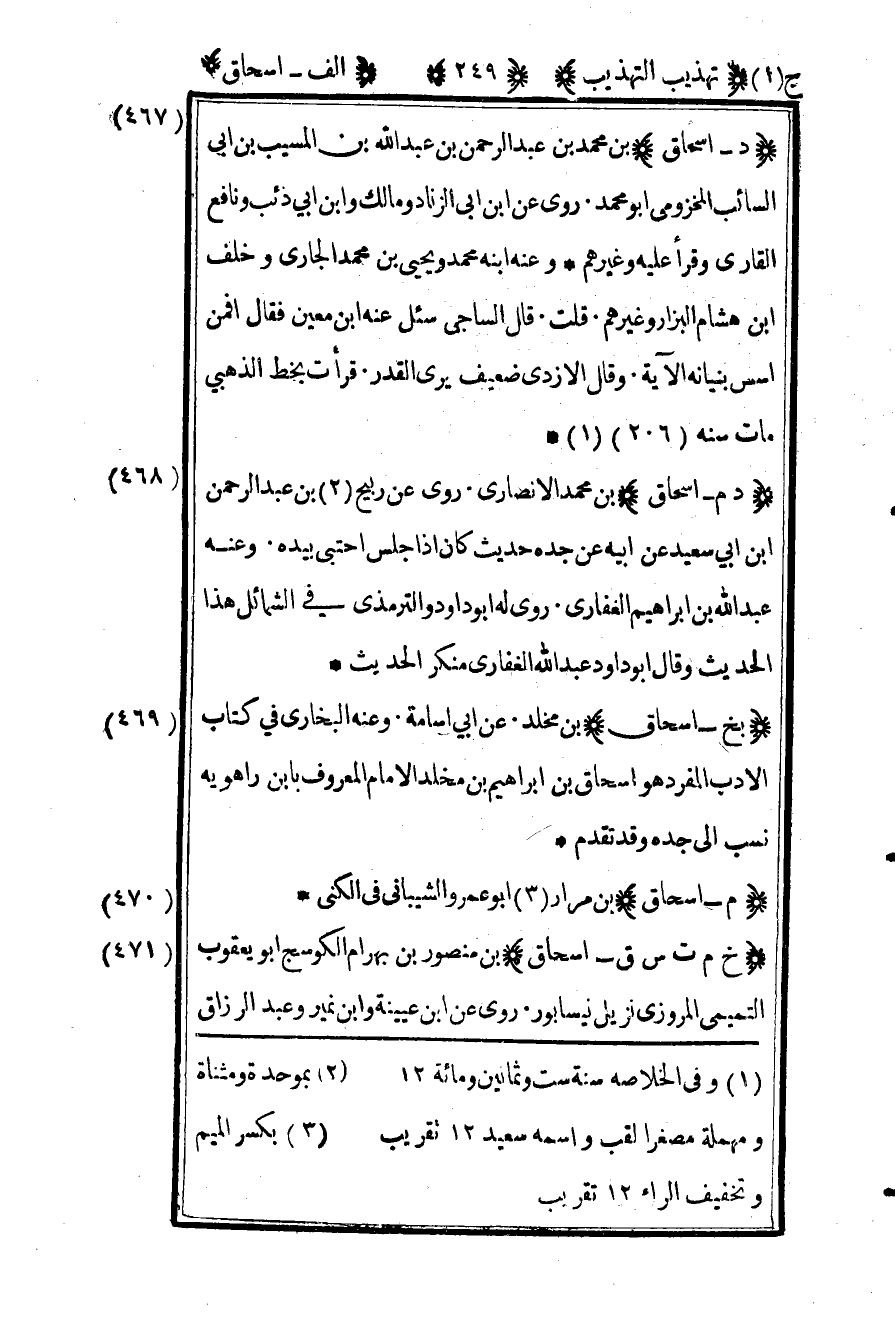 ج(١) ﴿ تهذيب التهذيب ﴾ ﴿ ٢٤٩ ﴾ ﴿ الف ـ اسحاق ﴾
(٤٦٧)
﴿ د ـ اسحاق ﴾ بن محمد بن عبدالرحمن بن عبدالله بن المسيب بن ابي
السائب المخزومى ابو محمد ٠ روى عن ابن ابى الزناد ومالك وابن ابي ذئب ونافع
القارى وقرأ عليه وغيرهم * وعنه ابنه محمد ويحيى بن محمد الجارى و خلف
ابن هشام البزار وغيرهم ٠ قلت ٠ قال الساجى سئل عنه ابن معين فقال افمن
اسس بنيانه الآية ٠ وقال الازدى ضعيف يرى القدر ٠ قرأت بخط الذهبي
مات سنه ( ٢٠٦ ) (١) *
(٤٦٨)
﴿ د م ـ اسحاق ﴾ بن محمد الانصارى ٠ روى عن ربيح (٢) بن عبدالرحمن
ابن ابي سعيد عن ابيه عن جده حديث كان اذا جلس احتبى بيده ٠ وعنه
عبدالله بن ابراهيم الغفارى ٠ روى له ابوداود والترمذى في الشمائل هذا
الحديث وقال ابوداود عبدالله الغفارى منكر الحديث *
(٤٦٩)
﴿ بخ ـ اسحاق ﴾ بن مخلد ٠ عن ابي اسامة ٠ وعنه البخارى في كتاب
الادب المفرد هو اسحاق بن ابراهيم بن مخلد الامام المعروف بابن راهويه
نسب الى جده وقد تقدم *
(٤٧٠)
﴿ م ـ اسحاق ﴾ بن مرار (٣) ابو عمرو الشيبانى فى الكنى *
(٤٧١)
﴿ خ م ت س ق ـ اسحاق ﴾ بن منصور بن بهرام الكوسج ابو يعقوب
التميمى المروزى نزيل نيسابور ٠ روى عن ابن عيينة وابن نمير وعبد الرزاق
(١) و فى الخلاصه سنة ست وثمانين ومائة ١٢ (٢) بموحدة ومثناة
و مهملة مصغرا لقب و اسمه سعيد ١٢ تقريب (٣) بكسر الميم
و تخفيف الراء ١٢ تقريب